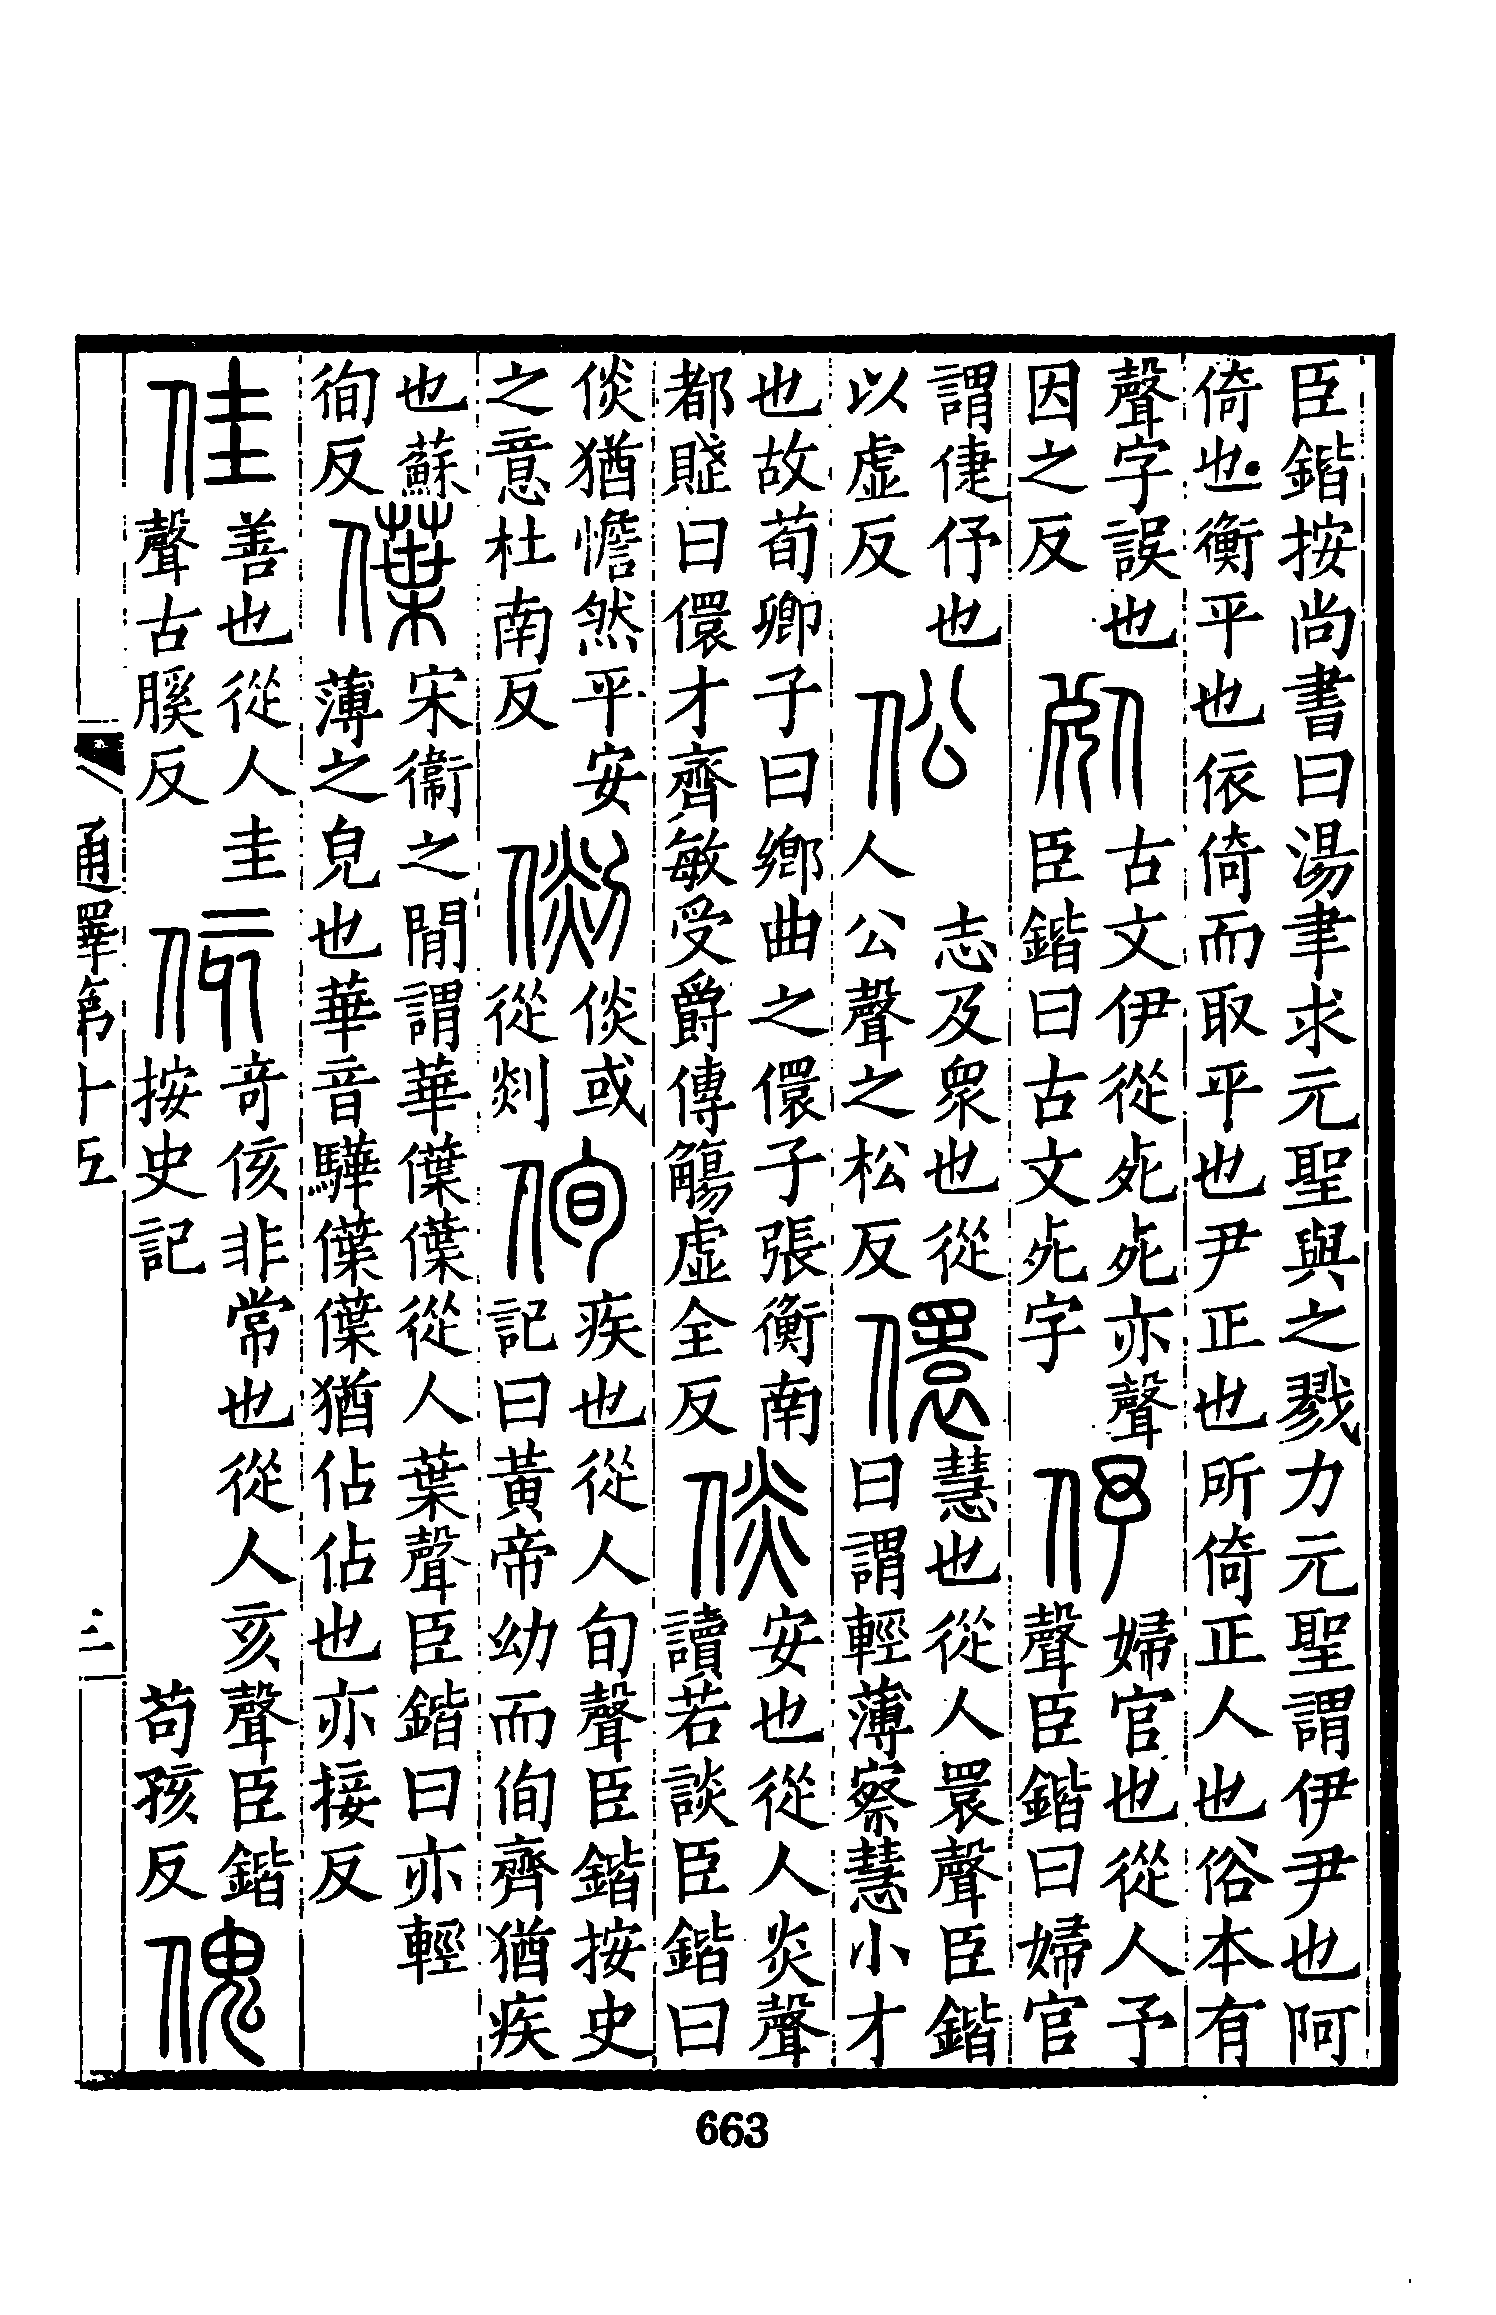 臣鍇按尚書曰湯聿求元聖與之戮力元聖謂伊尹也阿
倚也衡平也依倚而取平也尹正也所倚正人也俗本有
聲字誤也
因之反
古文伊從𣦸𣦸亦聲
臣鍇曰古文𣦸字
伃
婦官也從人予
聲臣鍇曰婦官
謂倢伃也
以虛反
伀
志及衆也從
人公聲之松反
儇
慧也從人瞏聲臣鍇
曰謂輕薄察慧小才
也故荀卿子曰鄉曲之儇子張衡南
都賦曰儇才齊敏受爵傳觴虛全反
倓
安也從人炎聲
讀若談臣鍇曰
倓猶憺然平安
之意杜南反
倓或
從剡
侚
疾也從人旬聲臣鍇按史
記曰黃帝幼而侚齊猶疾
也蘇
徇反
僷
宋衞之閒謂華僷僷從人葉聲臣鍇曰亦輕
薄之皃也華音驊僷僷猶佔佔也亦接反
佳
善也從人圭
聲古膎反
侅
奇侅非常也從人亥聲臣鍇
按史記 苟孩反
傀
通釋第十五
三
663